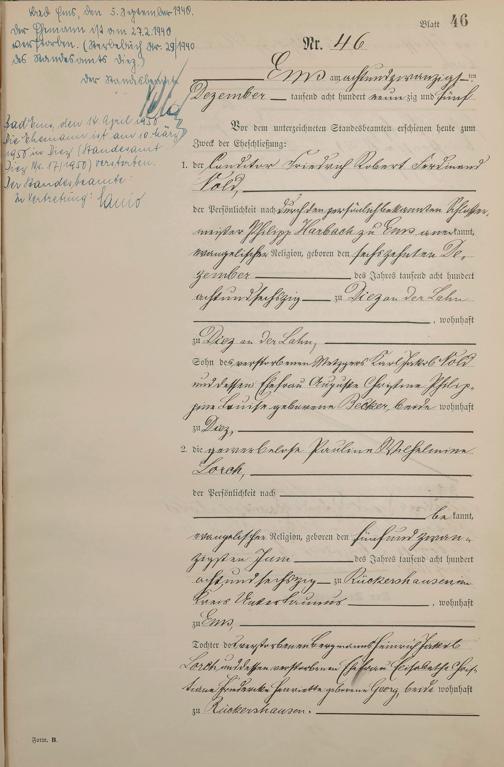 Blatt 46
Bad Ems, den 5. September 1940.
Der Ehemann ist am 27.2.1940
verstorben. (Sterbebuch Nr. 29/1940
des Standesamts Diez)
der Standesbeamte
Bad Ems, den 14. April 1950
Die Ehemann ist am 10. März
1950 in Diez (Standesamt
Diez Nr. 17/1950) verstorben.
Der Standesbeamte:
In Vertretung:
Nr. 46
Ems am achtundzwanzigsten
Dezember tausend acht hundert neunzig und fünf
Vor dem unterzeichneten Standesbeamten erschienen heute zum
Zweck der Eheschließung:
1. der Conditor Friedrich Robert Ferdinand
Nold,
der Persönlichkeit nach durch den persönlich bekannten Schlosser-
meister Philipp Harbach zu Ems anerkannt,
evangelischer Religion, geboren den sechszehnten De-
zember des Jahres tausend acht hundert
achtundsechszig zu Diez an der Lahn
, wohnhaft
zu Diez an der Lahn,
Sohn des verstorbenen Metzgers Karl Jakob Nold
und dessen Ehefrau Auguste Christine Philip-
pine Louise geborene Becker, beide wohnhaft
zu Diez,
2. die gewerbelose Pauline Wilhelmine
Lorch,
der Persönlichkeit nach
bekannt,
evangelischer Religion, geboren den fünfundzwan-
zigsten Juni des Jahres tausend acht hundert
achtundsechszig zu Rückershausen im
Kreis Untertaunus, wohnhaft
zu Ems,
Tochter des verstorbenen Bergmanns Heinrich Jakob
Lorch und dessen verstorbenen Ehefrau Elisabethe Chris-
tiane Friederike Henriette geborene Georg, beide wohnhaft
zu Rückershausen.
Form. B.